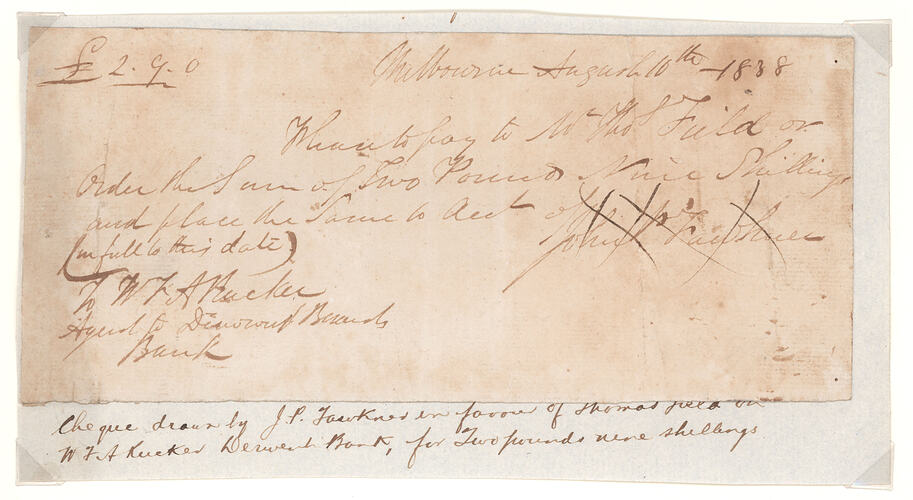 £ 2. 9. 0
Melbourne August 10th 1838
Please to pay to Mr Thos Field or
Order the Sum of Two Pounds Nine Shillings
and place the Same to Acct of
(in full to this date) John P Fawkner
To W F A Rucker
Agent to Derwent
Bank
Cheque drawn by J. P. Fawkner in favour of Thomas Field on
W F A Rucker Derwent Bank, for Two pounds nine shillings